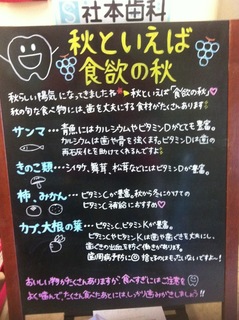 S 社本歯科
秋といえば
食欲の秋
秋らしい陽気になってきましたね 秋といえば「食欲の秋」
秋の旬な食べ物には、歯を丈夫にする食材がたくさんあります
サンマ…青魚にはカルシウムやビタミンDがとても豊富。
カルシウムは歯や骨を強くします。ビタミンDは歯の
再石灰化を助けてくれるんですよ
きのこ類…シイタケ、舞茸、松茸などにはビタミンDが豊富。
柿、みかん…ビタミンCが豊富。秋から冬にかけての
ビタミンC補給におすすめ
カブ、大根の葉…ビタミンC、ビタミンKが豊富。
ビタミンCやビタミンKは歯や歯ぐきを丈夫にし、
歯ぐきの出血を防ぐ働きがあります。
歯周病予防に 捨てるのはもったいないですよ!
おいしい物がたくさんありますが、食べすぎにはご注意を
よく噛んで、たくさん食べたあとには、しっかり歯みがきしましょう!!